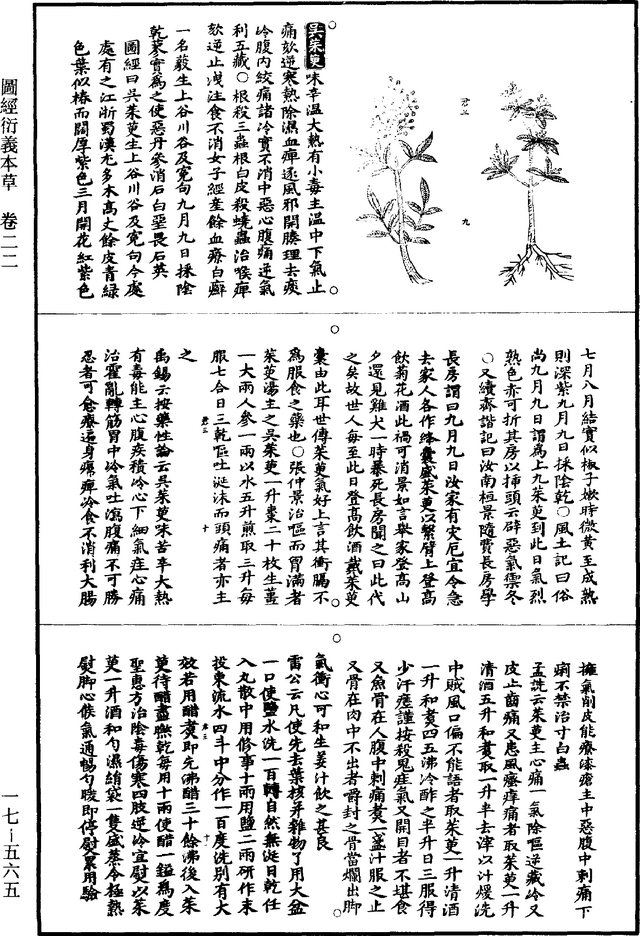 圖經衍義本草 卷二二
一七–五六五
吳茱萸味辛溫大熱有小毒主溫中下氣止
痛欬逆寒熱除濕血痺逐風邪開腠理去痰
冷腹內絞痛諸冷實不消中惡心腹痛逆氣
利五藏○根殺三蟲根白皮殺蟯蟲治喉痺
欬逆止洩注食不消女子經產餘血療白癬
一名藙生上谷川谷及寃句九月九日採陰
乾蓼實爲之使惡丹參消石白堊畏石英
圖經曰吳茱萸生上谷川谷及寃句今處
處有之江浙蜀漢尤多木高丈餘皮青綠
色葉似椿而闊厚紫色三月開花紅紫色
七月八月結實似椒子嫩時微黃至成熟
則深紫九月九日採陰乾○風土記曰俗
尚九月九日謂爲上九茱萸到此日氣烈
熟色赤可折其房以插頭云辟惡氣禦冬
○又續齊諧記曰汝南桓景隨費長房學
長房謂曰九月九日汝家有灾厄宜令急
去家人各作絳囊盛茱萸以繫臂上登高
飲菊花酒此禍可消景如言舉家登高山
夕還見雞犬一時暴死長房聞之曰此代
之矣故世人每至此日登高飲酒戴茱萸
囊由此耳世傳茱萸氣好上言其衝膈不
爲服食之藥也○張仲景治嘔而胃滿者
茱萸湯主之吳茱萸一升棗二十枚生薑
一大兩人參一兩以水五升煎取三升每
服七合日三乾嘔吐涎沫而頭痛者亦主
之
禹錫云按藥性論云吳茱萸味苦辛大熱
有毒能主心腹疾積冷心下細氣疰心痛
治霍亂轉筋胃中冷氣吐瀉腹痛不可勝
忍者可愈療遍身㿏痺冷食不消利大腸
擁氣削皮能療漆瘡主中惡腹中刺痛下
痢不禁治寸白蟲
孟詵云茱萸主心痛一氣除嘔逆藏冷又
皮止齒痛又患風瘙痒痛者取茱萸一升
清酒五升和煮取一升半去滓以汁煖洗
中賊風口偏不能語者取茱萸一升清酒
一升和煮四五沸冷酢之半升日三服得
少汗瘥謹按殺鬼疰氣又開目者不堪食
又魚骨在人腹中刺痛煮一盞汁服之止
又骨在肉中不出者嚼封之骨當爛出脚
氣衝心可和生姜汁飲之甚良
雷公云凡使先去葉核并雜物了用大盆
一口使鹽水洗一百轉自然無涎日乾任
入丸散中用修事十兩用鹽二兩研作末
投東流水四斗中分作一百度洗別有大
效若用醋煮即先沸醋三十餘沸後入茱
萸待醋盡曒乾每用十兩使醋一鎰爲度
聖惠方治陰毒傷寒四肢逆冷宜熨以茱
萸一升酒和勻濕絹袋一隻盛蒸令極熱
熨脚心候氣通暢勻暖即停熨累用驗